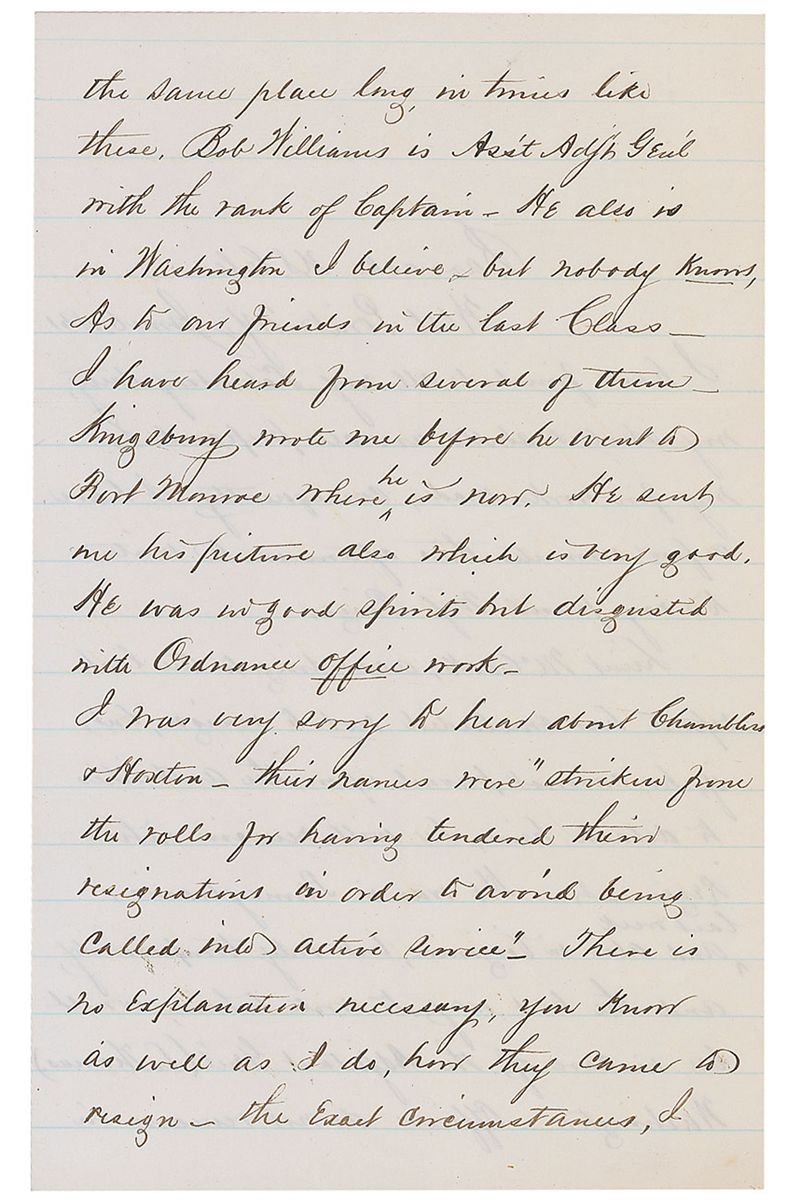 the same place long, in times like
these. Bob Williams is Ass't Adj't Gen'l
with the rank of Captain – He also is
in Washington I believe – but nobody knows,
As to our friends in the last Class –
I have heard from several of them –
Kingsbury wrote me before he went to
Fort Monroe where he is now. He sent
me his picture also which is very good.
He was in good spirits but disgusted
with Ordnance office work –
I was very sorry to hear about Chambliss
& Hoxton – their names were "striken from
the rolls for having tendered their
resignations in order to avoid being
called into active service" – There is
no Explanation necessary, you Know
as well as I do, how they came to
resign – the Exact circumstances, I